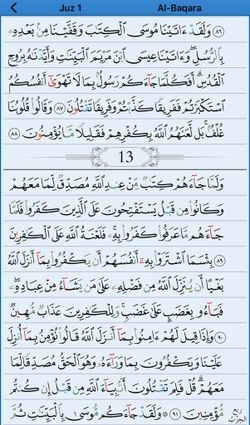 Juz 1 Al-Baqara
٨٦ وَلَقَدْ ءَاتَيْنَا مُوسَى ٱلْكِتَٰبَ وَقَفَّيْنَا مِنۢ بَعْدِهِۦ
بِٱلرُّسُلِ ۖ وَءَاتَيْنَا عِيسَى ٱبْنَ مَرْيَمَ ٱلْبَيِّنَٰتِ وَأَيَّدْنَٰهُ بِرُوحِ
ٱلْقُدُسِ ۗ أَفَكُلَّمَا جَآءَكُمْ رَسُولٌۢ بِمَا لَا تَهْوَىٰٓ أَنفُسُكُمُ
ٱسْتَكْبَرْتُمْ فَفَرِيقًا كَذَّبْتُمْ وَفَرِيقًا تَقْتُلُونَ ٨٧ وَقَالُوا۟ قُلُوبُنَا
غُلْفٌۢ ۚ بَل لَّعَنَهُمُ ٱللَّهُ بِكُفْرِهِمْ فَقَلِيلًا مَّا يُؤْمِنُونَ ٨٨
13
وَلَمَّا جَآءَهُمْ كِتَٰبٌ مِّنْ عِندِ ٱللَّهِ مُصَدِّقٌ لِّمَا مَعَهُمْ
وَكَانُوا۟ مِن قَبْلُ يَسْتَفْتِحُونَ عَلَى ٱلَّذِينَ كَفَرُوا۟ فَلَمَّا
جَآءَهُم مَّا عَرَفُوا۟ كَفَرُوا۟ بِهِۦ ۚ فَلَعْنَةُ ٱللَّهِ عَلَى ٱلْكَٰفِرِينَ
٨٩ بِئْسَمَا ٱشْتَرَوْا۟ بِهِۦٓ أَنفُسَهُمْ أَن يَكْفُرُوا۟ بِمَآ أَنزَلَ ٱللَّهُ
بَغْيًا أَن يُنَزِّلَ ٱللَّهُ مِن فَضْلِهِۦ عَلَىٰ مَن يَشَآءُ مِنْ عِبَادِهِۦ ۖ
فَبَآءُو بِغَضَبٍ عَلَىٰ غَضَبٍ ۚ وَلِلْكَٰفِرِينَ عَذَابٌ مُّهِينٌ
٩٠ وَإِذَا قِيلَ لَهُمْ ءَامِنُوا۟ بِمَآ أَنزَلَ ٱللَّهُ قَالُوا۟ نُؤْمِنُ بِمَآ أُنزِلَ
عَلَيْنَا وَيَكْفُرُونَ بِمَا وَرَآءَهُۥ وَهُوَ ٱلْحَقُّ مُصَدِّقًا لِّمَا
مَعَهُمْ ۗ قُلْ فَلِمَ تَقْتُلُونَ أَنۢبِيَآءَ ٱللَّهِ مِن قَبْلُ إِن كُنتُم
مُّؤْمِنِينَ ٩١ وَلَقَدْ جَآءَكُم مُّوسَىٰ بِٱلْبَيِّنَٰتِ ثُمَّ
ربع
الحزب